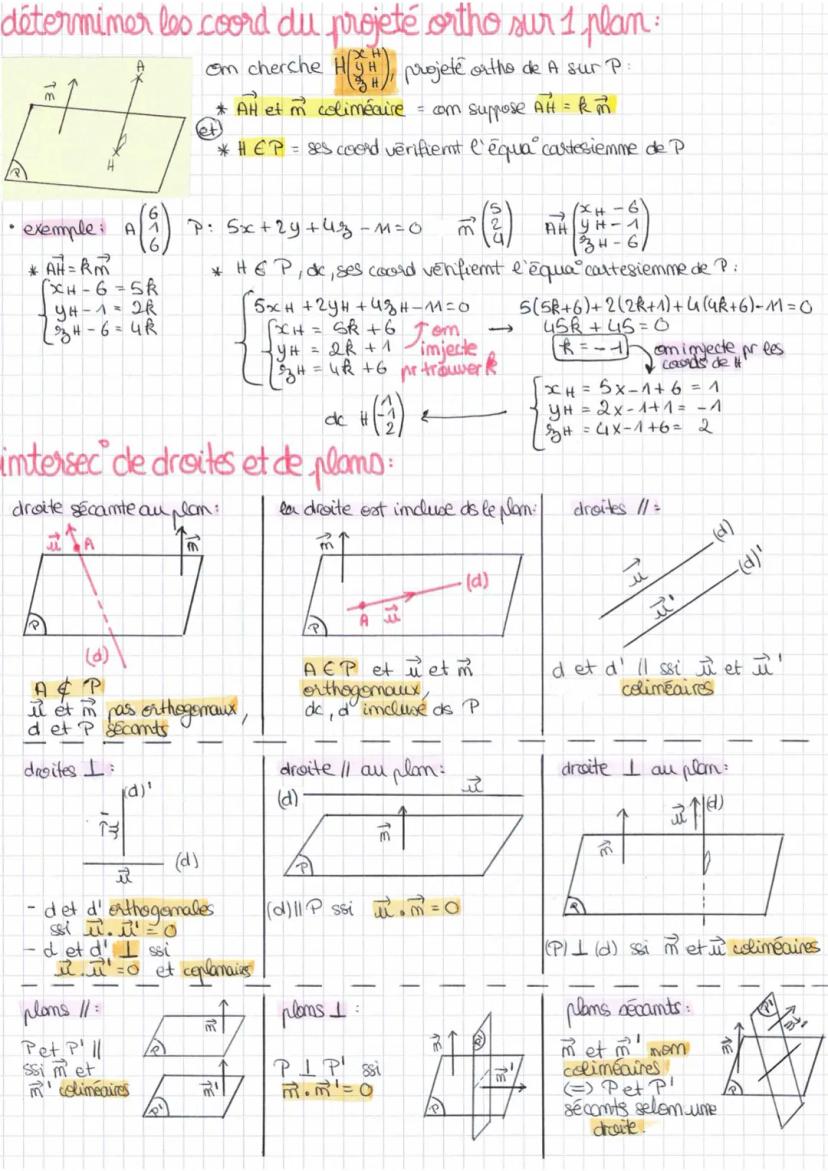 déterminer les coord du projeté ortho sur 1 plan:
on cherche H(xH yH zH), projeté ortho de A sur P:
* AH et n colinéaire = on suppose AH = k n
et
* H ∈ P = ses coord vérifient l'équa° cartesienne de P
n A H P
• exemple: A(6 1 6) P: 5x + 2y + 4z - 11 = 0 n(5 2 4) AH(xH - 6 yH - 1 zH - 6)
* AH = k n
xH - 6 = 5k
yH - 1 = 2k
zH - 6 = 4k
* H ∈ P, dc, ses coord vérifient l'équa° cartesienne de P:
5xH + 2yH + 4zH - 11 = 0
xH = 5k + 6
yH = 2k + 1
zH = 4k + 6
on
injecte
pr trouver k
→ 5(5k+6) + 2(2k+1) + 4(4k+6) - 11 = 0
45k + 45 = 0
k = -1
on injecte pr les
coords de H
xH = 5x-1+6 = 1
yH = 2x-1+1 = -1
zH = 4x-1+6 = 2
dc H(1 -1 2)
intersec° de droites et de plans:
droite sécante au plan:
u A n
P
(d)
A ∉ P
u et n pas orthogonaux,
d et P sécants
la droite est incluse ds le plan:
n
(d)
A u
P
A ∈ P et u et n
orthogonaux,
dc, d incluse ds P
droites // :
(d)
u (d)'
u'
d et d' // ssi u et u'
colinéaires
droites ⊥ :
(d)'
u'
(d)
u
- d et d' orthogonales
ssi u . u' = 0
- d et d' ⊥ ssi
u . u' = 0 et coplanaires
droite // au plan:
(d) u
n
P
(d) // P ssi u . n = 0
droite ⊥ au plan:
u (d)
n
P
(P) ⊥ (d) ssi n et u colinéaires
plans // :
P et P' //
ssi n et
n' colinéaires
n
P
n'
P'
plans ⊥ :
P ⊥ P' ssi
n . n' = 0
n
n'
P
plans sécants:
n et n' non
colinéaires
(=) P et P'
sécants selon une
droite.
P'
n
P